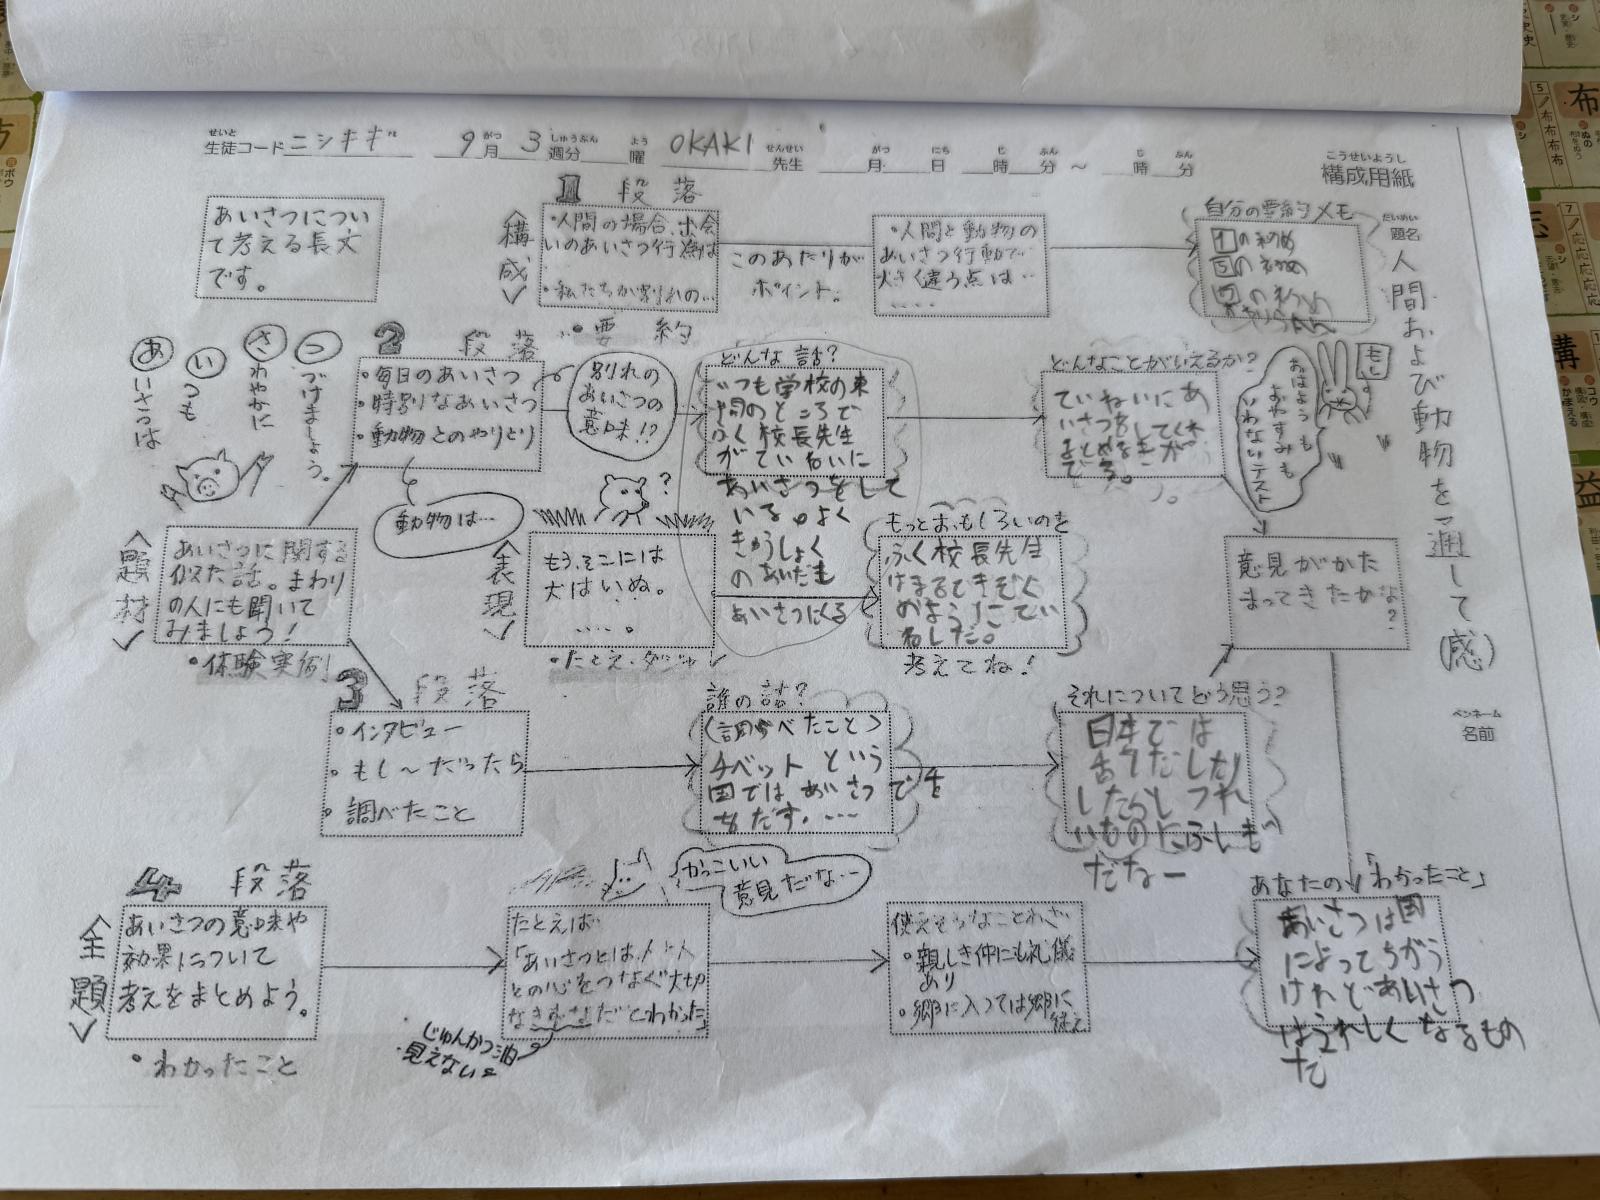 せいと
生徒コード ニシキギ 9月 3週分 曜 OKAKI 先生 月 日 時 分 ～ 時 分
がつ しゅうぶん よう せんせい がつ にち じ ふん じ ふん
こうせいようし
構成用紙
だいめい
題名
人間および動物を通して(感)
ペンネーム
名前
あいさつについ
て考える長文
です。
〈構成〉
1 段落
・人間の場合、出会
いのあいさつ行為は
・私たちが別れの…
・要約
このあたりが
ポイント。
・人間と動物の
あいさつ行動で
大きく違う点は…
・・・・
自分の要約メモ
1の初め
5の初め
あいさつは
いつも
さわやかに
つづけましょう。
2 段落
・毎日のあいさつ
・特別なあいさつ
・動物とのやりとり
別れの
あいさつの
意味!?
動物は…
どんな話?
いつも学校の
のところで
ふく校長先生
がていねいに
あいさつをして
いる。よく
きゅうしょく
のあいだも
あいさつにくる
どんなことがいえるか?
ていねいにあ
いさつをしてくれ
もし。
おはようも
おやすみも
いわないテスト
〈題材〉
あいさつに関する
似た話。まわり
の人にも聞いて
みましょう!
・体験実例
〈表現〉
?
もう、そこには
犬はいぬ。
・・・・。
・たとえ・ダジャレ
もっとおもしろいのを
ふく校長先生
はまるできぞく
のようにてい
ねいだ。
考えてね!
意見がかた
まってきたかな?
3 段落
・インタビュー
・もし～だったら
・調べたこと
誰の話?
(調べたこと)
チベットという
国ではあいさつで
をだす。……
それについてどう思う?
日本では
したをだしたり
したらしつれ
いものにふしぎ
だなー
〈全題〉
4 段落
あいさつの意味や
効果について
考えをまとめよう。
・わかったこと
かっこいい
意見だな…
たとえば
「あいさつとは、人と人
との心をつなぐ大切
なきずなだとわかった」
じゅんかつ油
見えない
使えそうなことわざ
・親しき仲にも礼儀
あり
・郷に入っては郷に
従え
あなたの「わかったこと」
あいさつは国
によってちがう
けれどあいさつ
はうれしくなるもの
だ